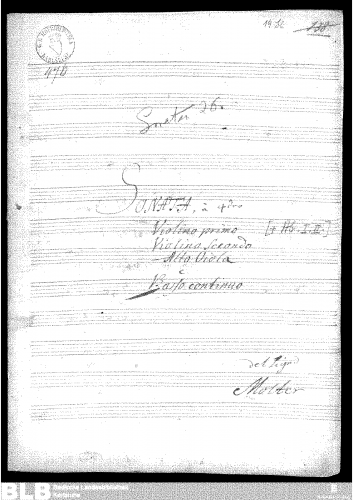 19.56
330
470
Sonata 26.
SONATA, à 4tro
Violino primo [+ Hb. I. II.]
Violino Secondo
Alto Viola
e
Basso continuo
del Sigr
Molter
BLB Badische Landesbibliothek
Karlsruhe